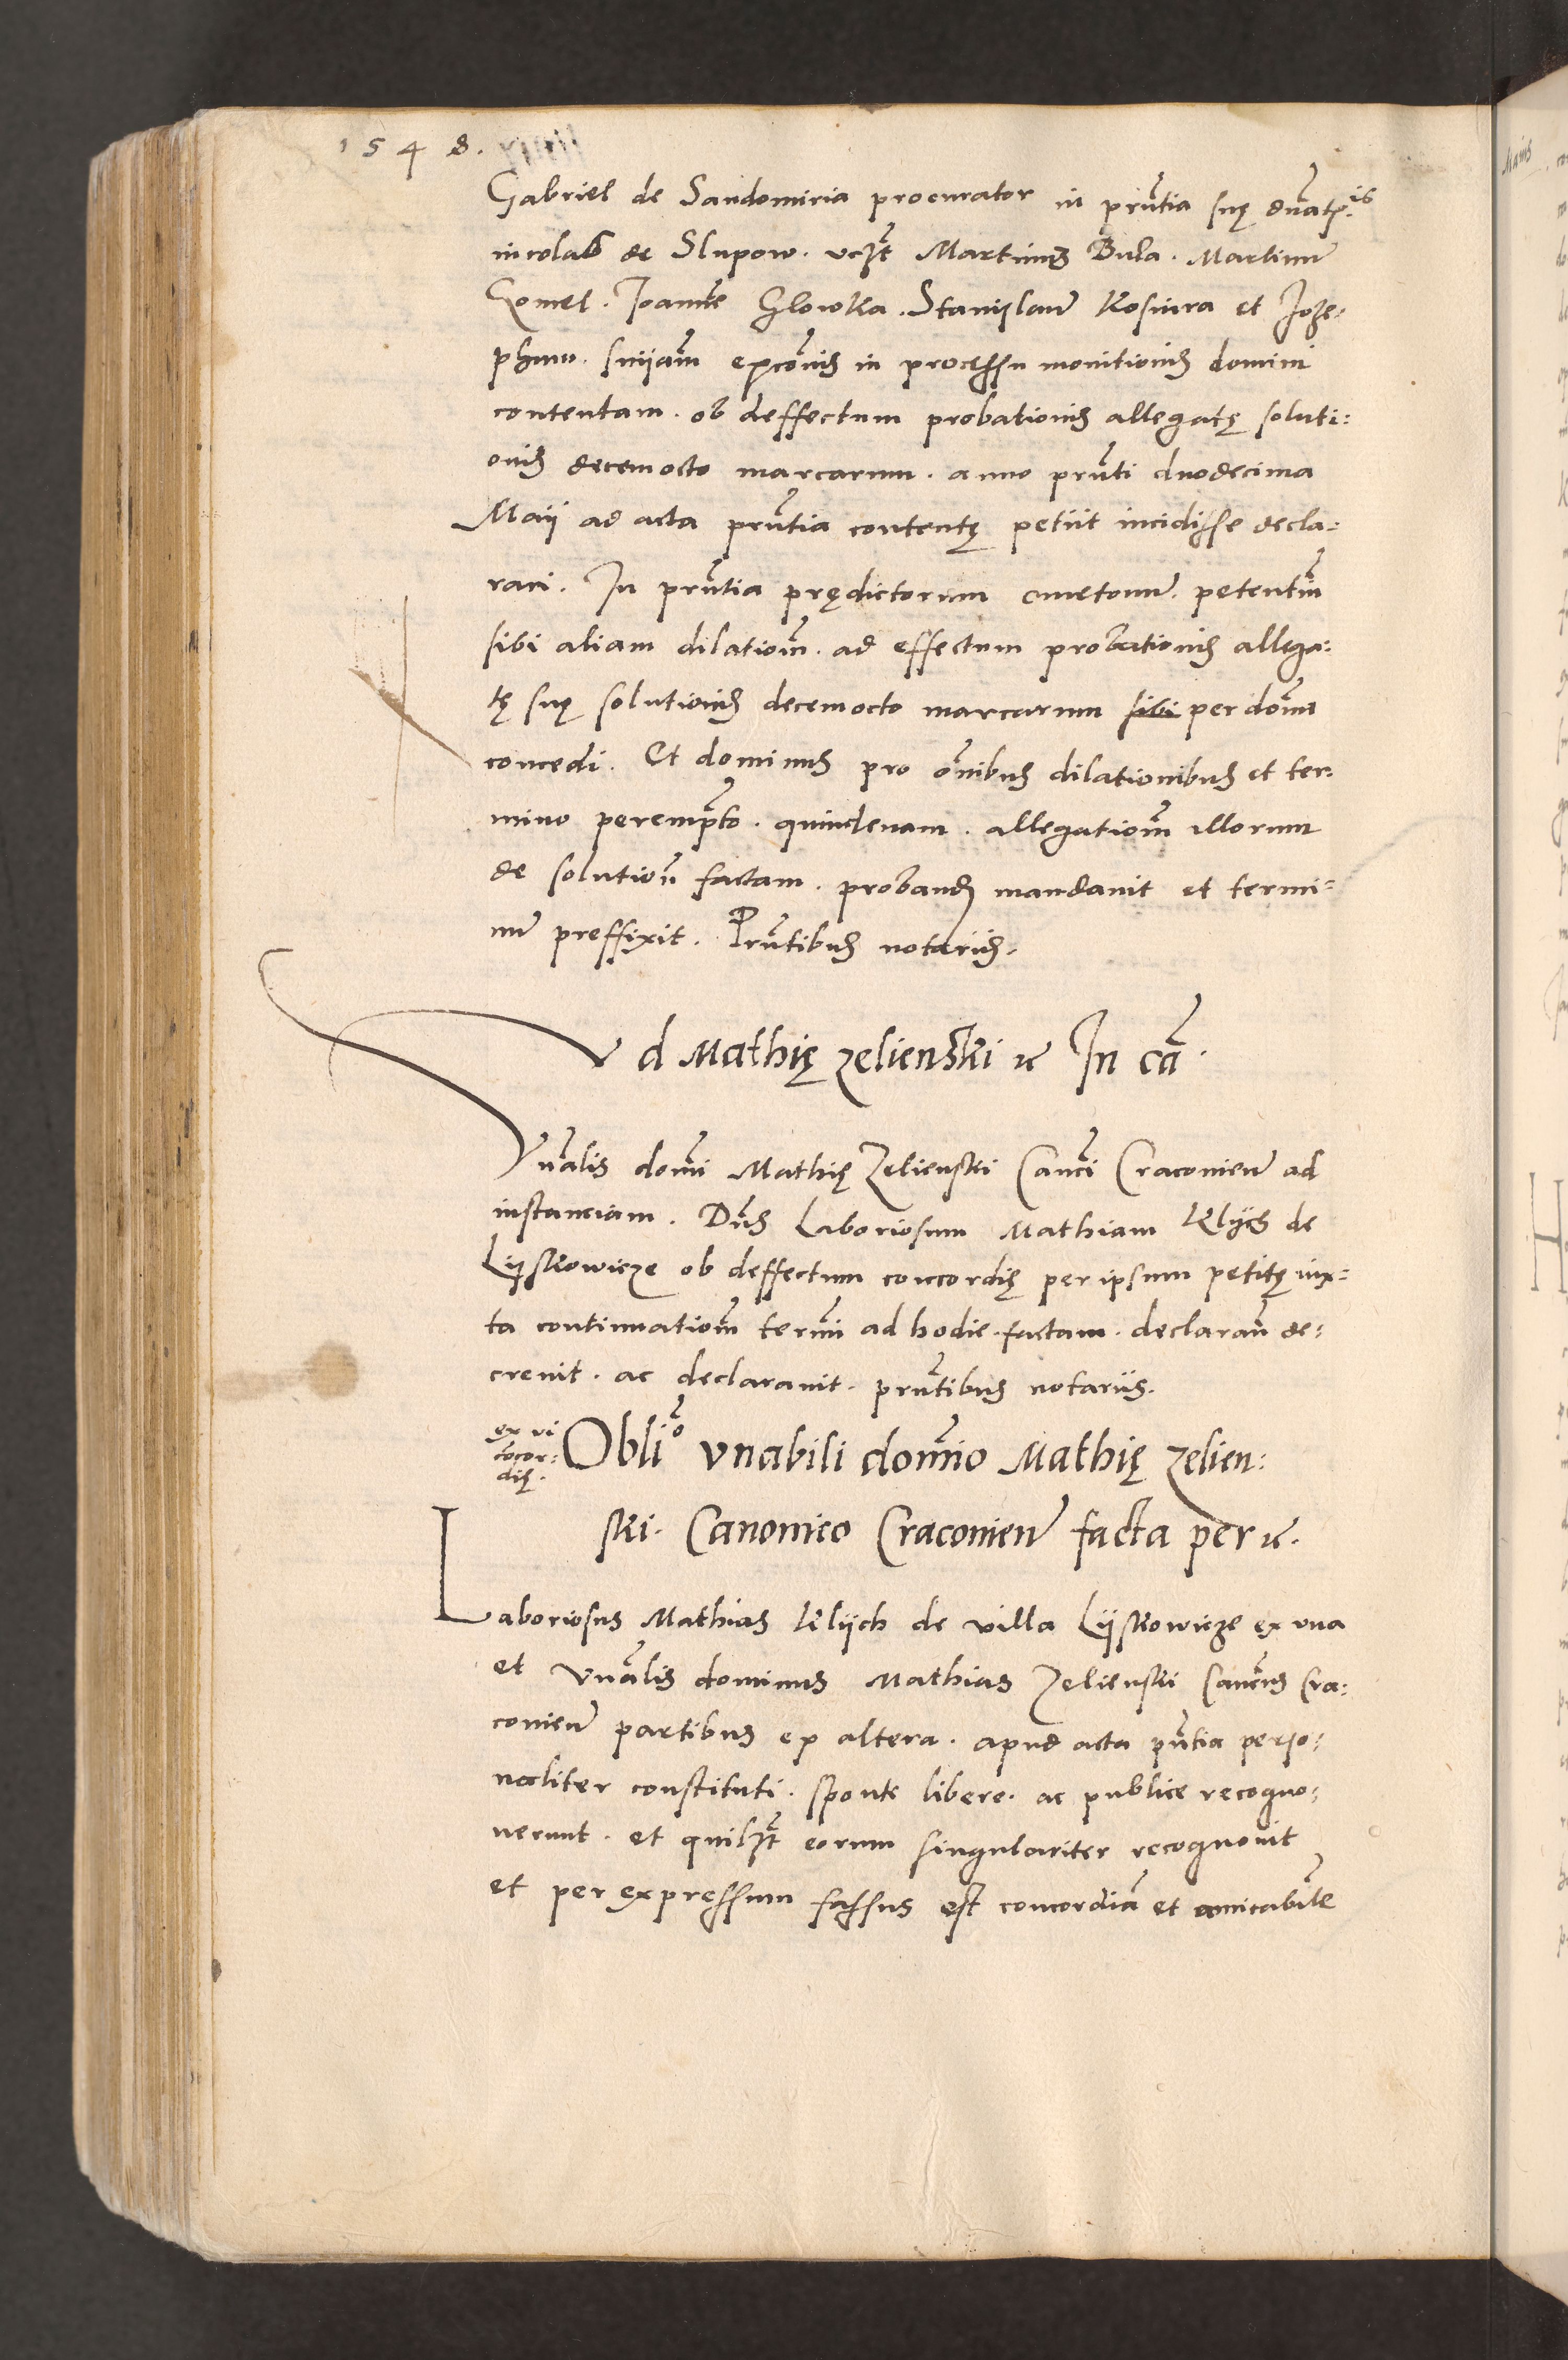 1548.
Gabriel de Sandomiria procurator in prñtia suę
incolas de Slupow. vczt Martinus Buła. Martinum
Gomel. Joannē Glowka. Stanislaum Kosiura et Joze-
phum. sniiam exconis in processu monitionis domini
contentam. ob deffectum probationis allegatę soluti:
onis decemocto marcarum. anno prñti duodecima
Maii ad acta prñtia contentę petiit incidisse decla:
rari. In prñtia prędictorum cmetonum. petentiū
sibi aliam dilationē. ad effectum probationis allega:
tę suę solutionis decemocto marcarum sibi per domū
concedi. Et dominus pro omnibus dilationibus et ter:
mino perempto. quindenam. allegationē illorum
de solutionē factam. proband mandauit et termi:
num preffixit. Prñtibus notariis.
V d Mathię zelienski rc In cā.
Vnalis domni Mathię Zelienski Canci Cracouien ad
instanciam. Dns Laboriosum Mathiam Klyś de
Lyskowicze ob deffectum concordię per ipsum petitę iux:
ta continuationē termi ad hodie. factam. declaran de:
creuit. ac declarauit. prñtibus notariis.
ex vi
concor:
dię.
Oblio vnabili domio Mathię zelien:
ski. Canonico Cracouien facta per rc.
Laboriosus Mathias Klych de villa Lyskowicze ex vna
et Vnalis dominus Mathias Zelienski Cancus Cra:
couien partibus ex altera. apud acta pntia perso:
naliter constituti. sponte libere. ac publice recogno:
uerunt. et quilzt eorum singulariter recognouit
et per expressum fassus est concordiā et amicabile